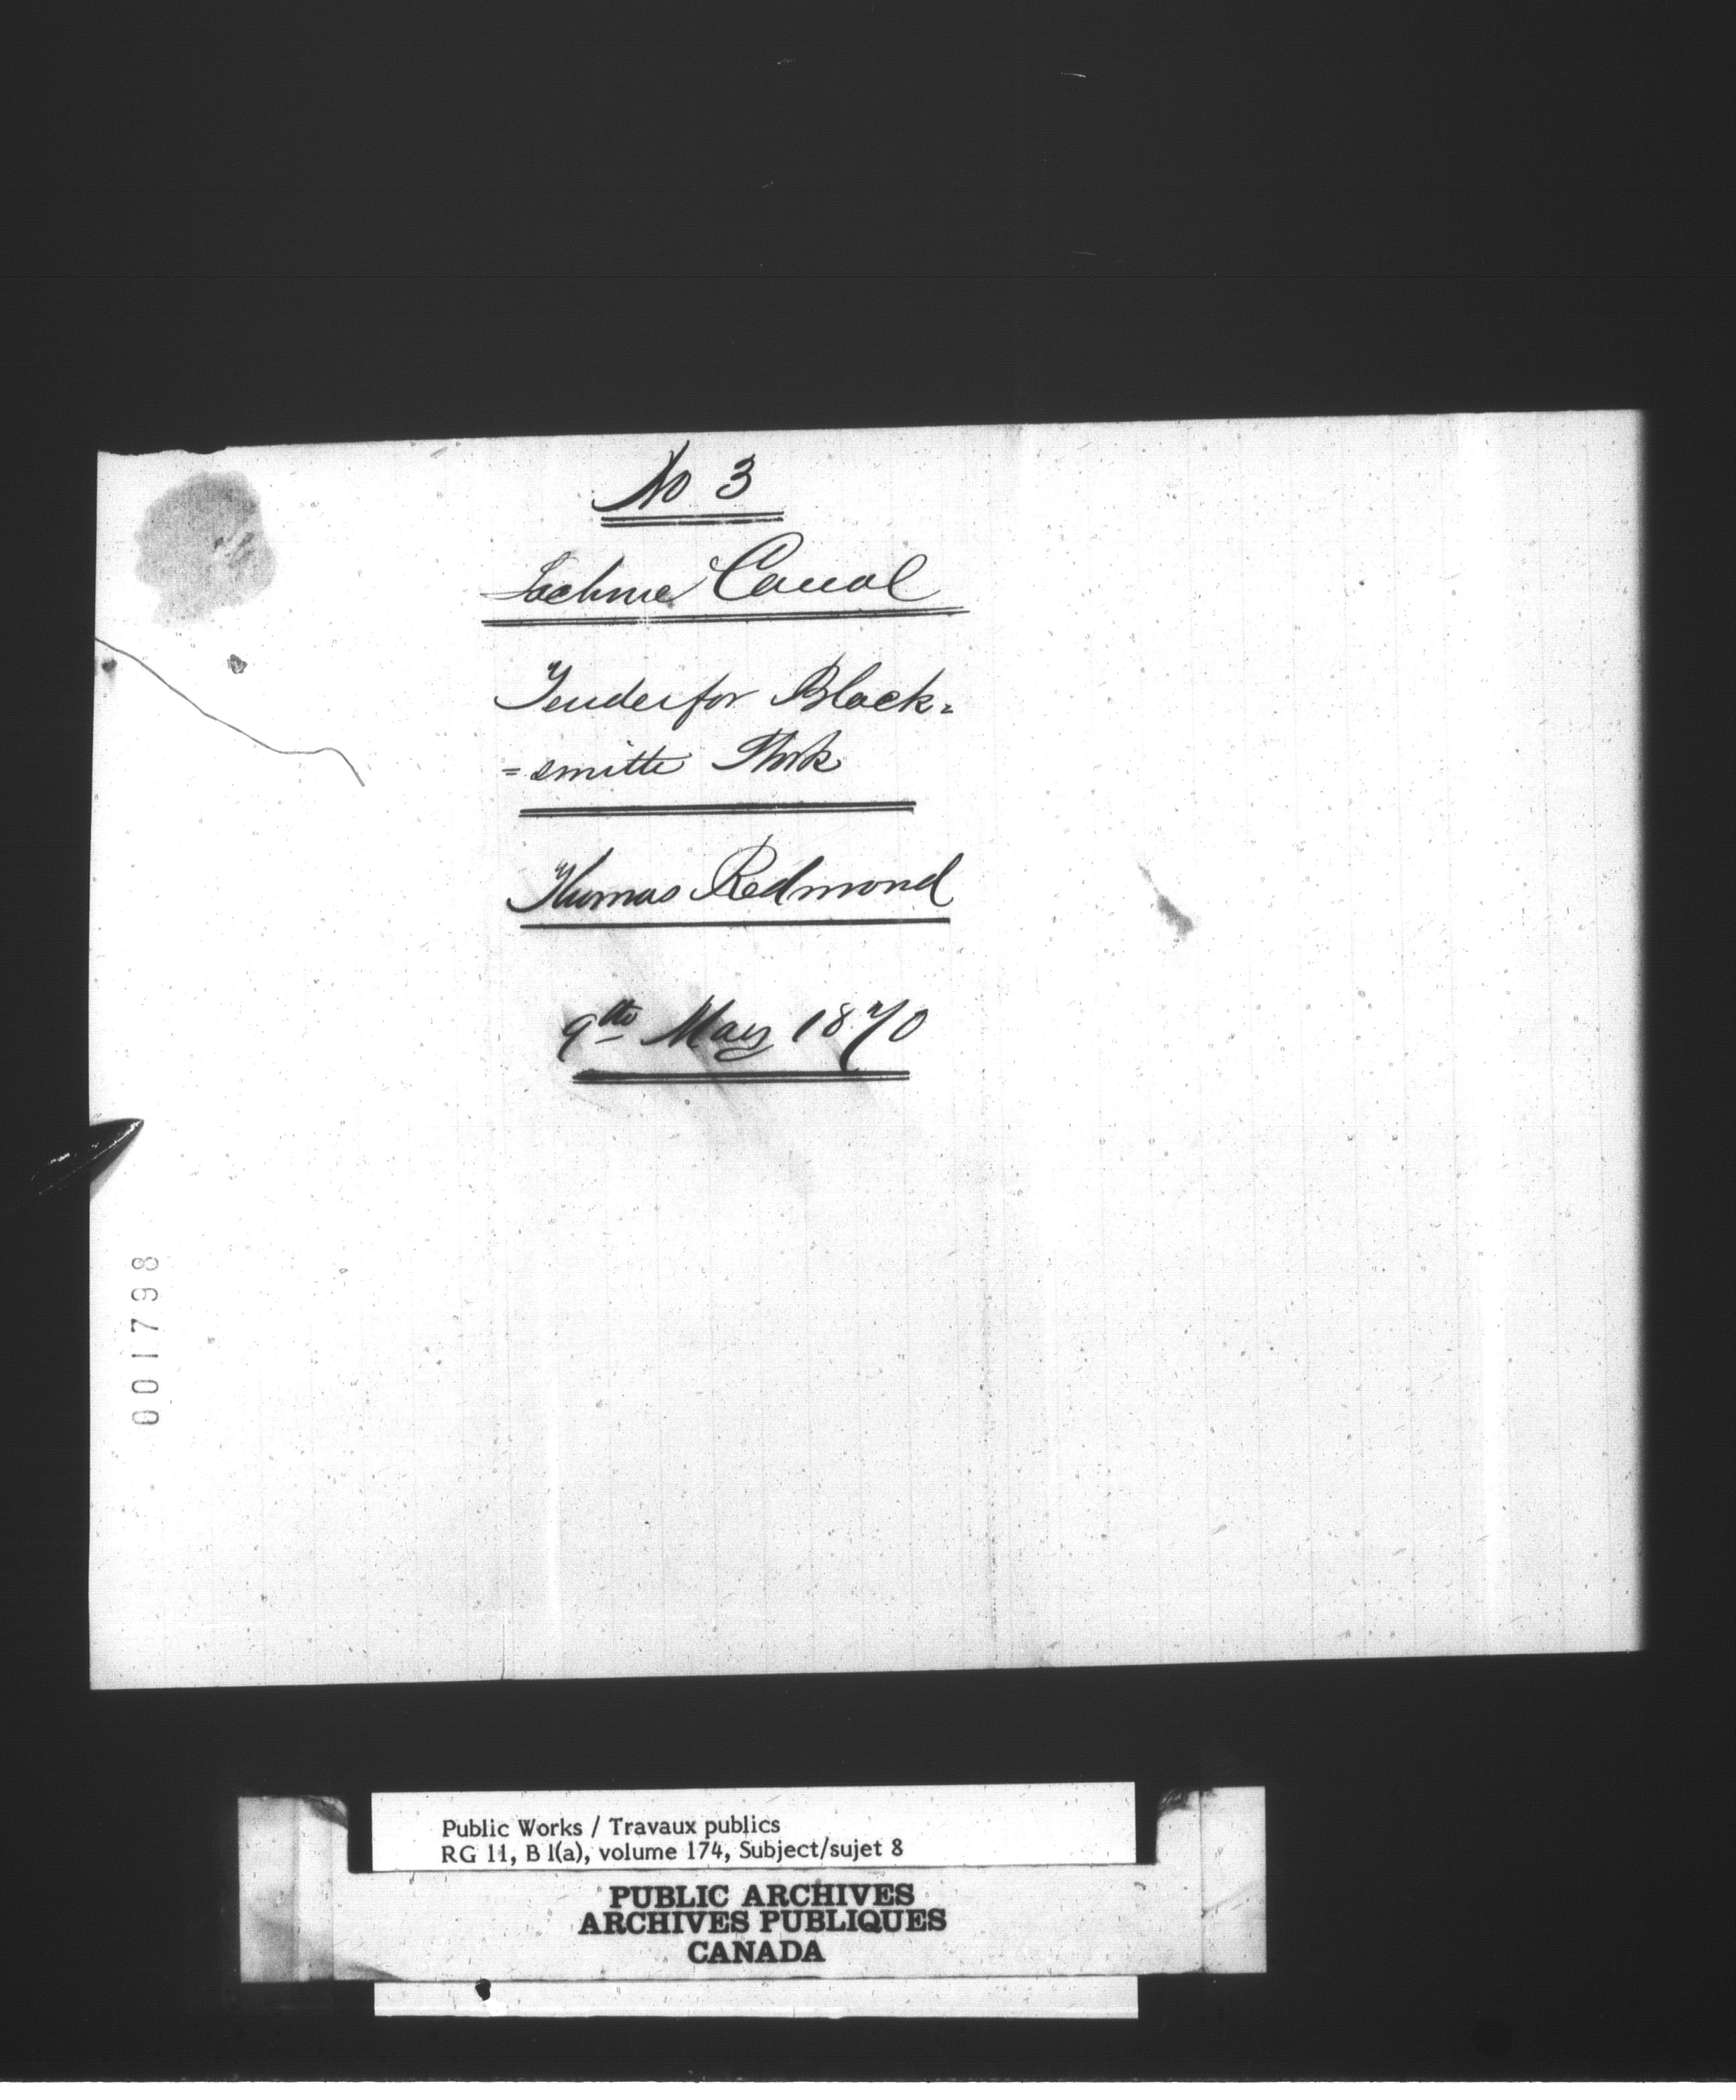 No 3
Lachine Canal
Tender for Black=
=smith Work
Thomas Redmond
9th May 1870
001798
Public Works / Travaux publics
RG 11, B 1(a), volume 174, Subject/sujet 8
PUBLIC ARCHIVES
ARCHIVES PUBLIQUES
CANADA